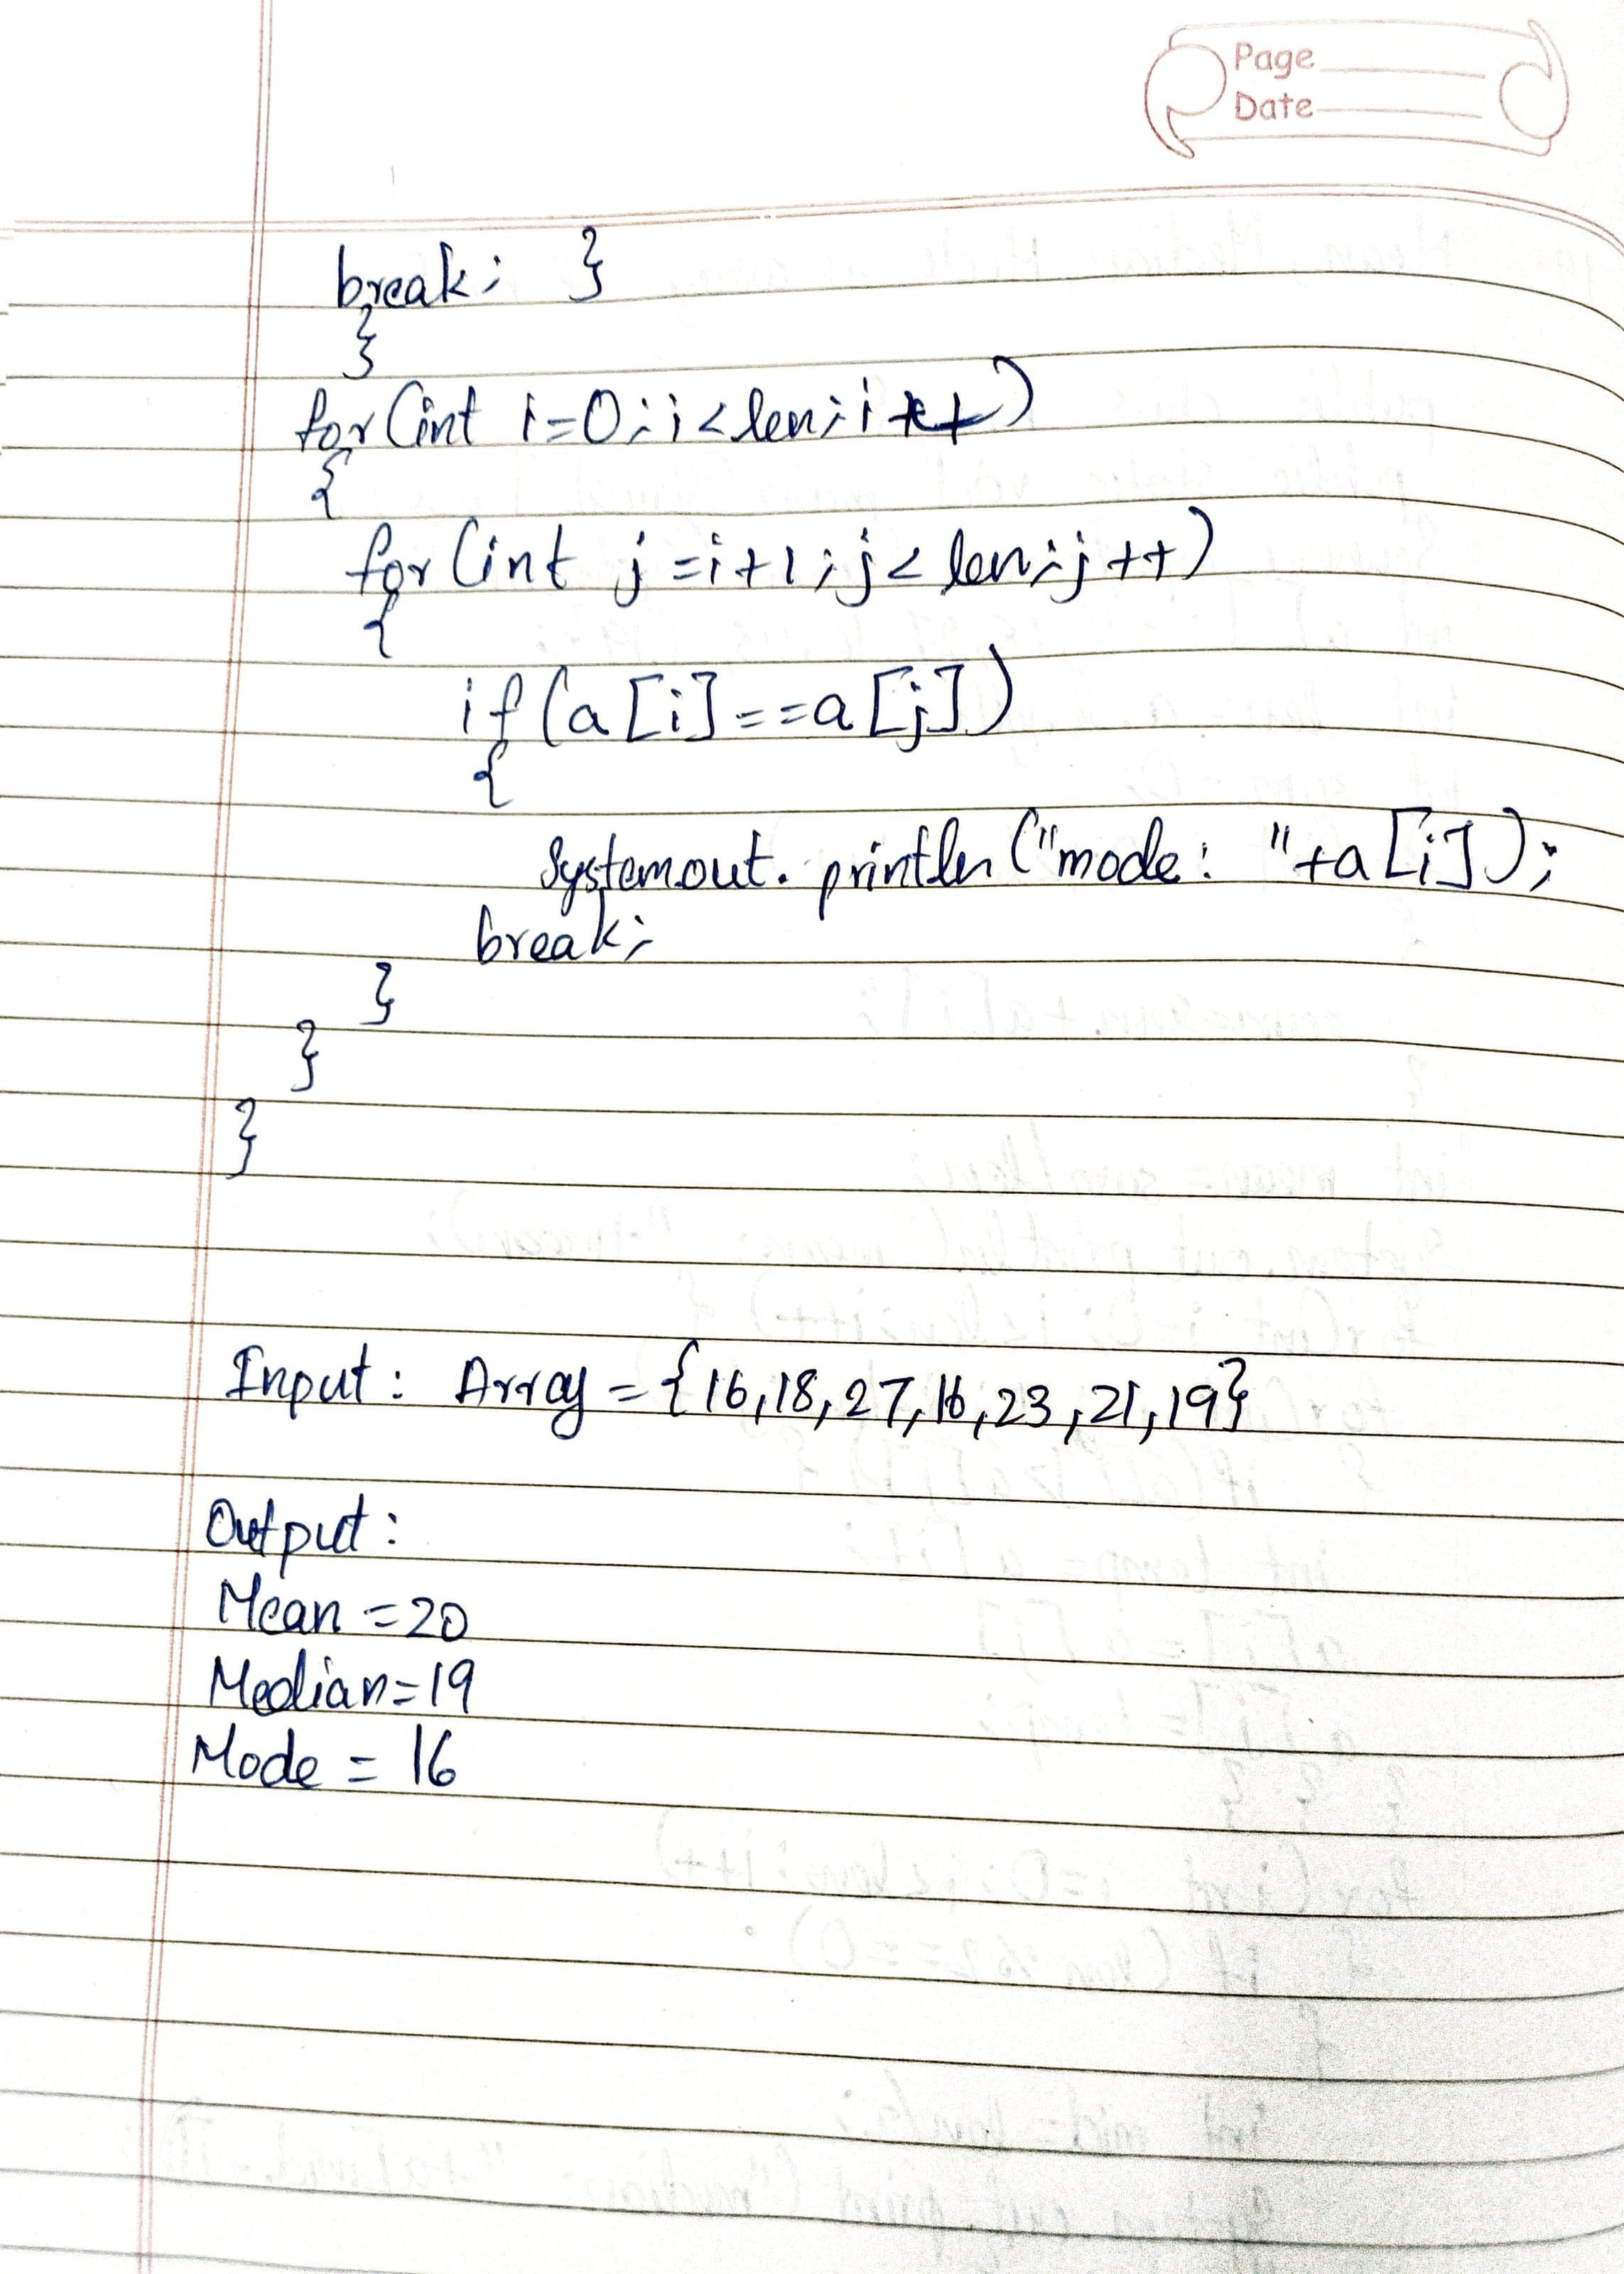 Page
Date
break; }
}
for(int i=0;i<len;i++)
{
for(int j=i+1;j<len;j++)
{
if(a[i]==a[j])
{
System.out.println("mode: "+a[i]);
break;
}
}
}
Input: Array = {16,18,27,16,23,21,19}
Output:
Mean =20
Median=19
Mode = 16